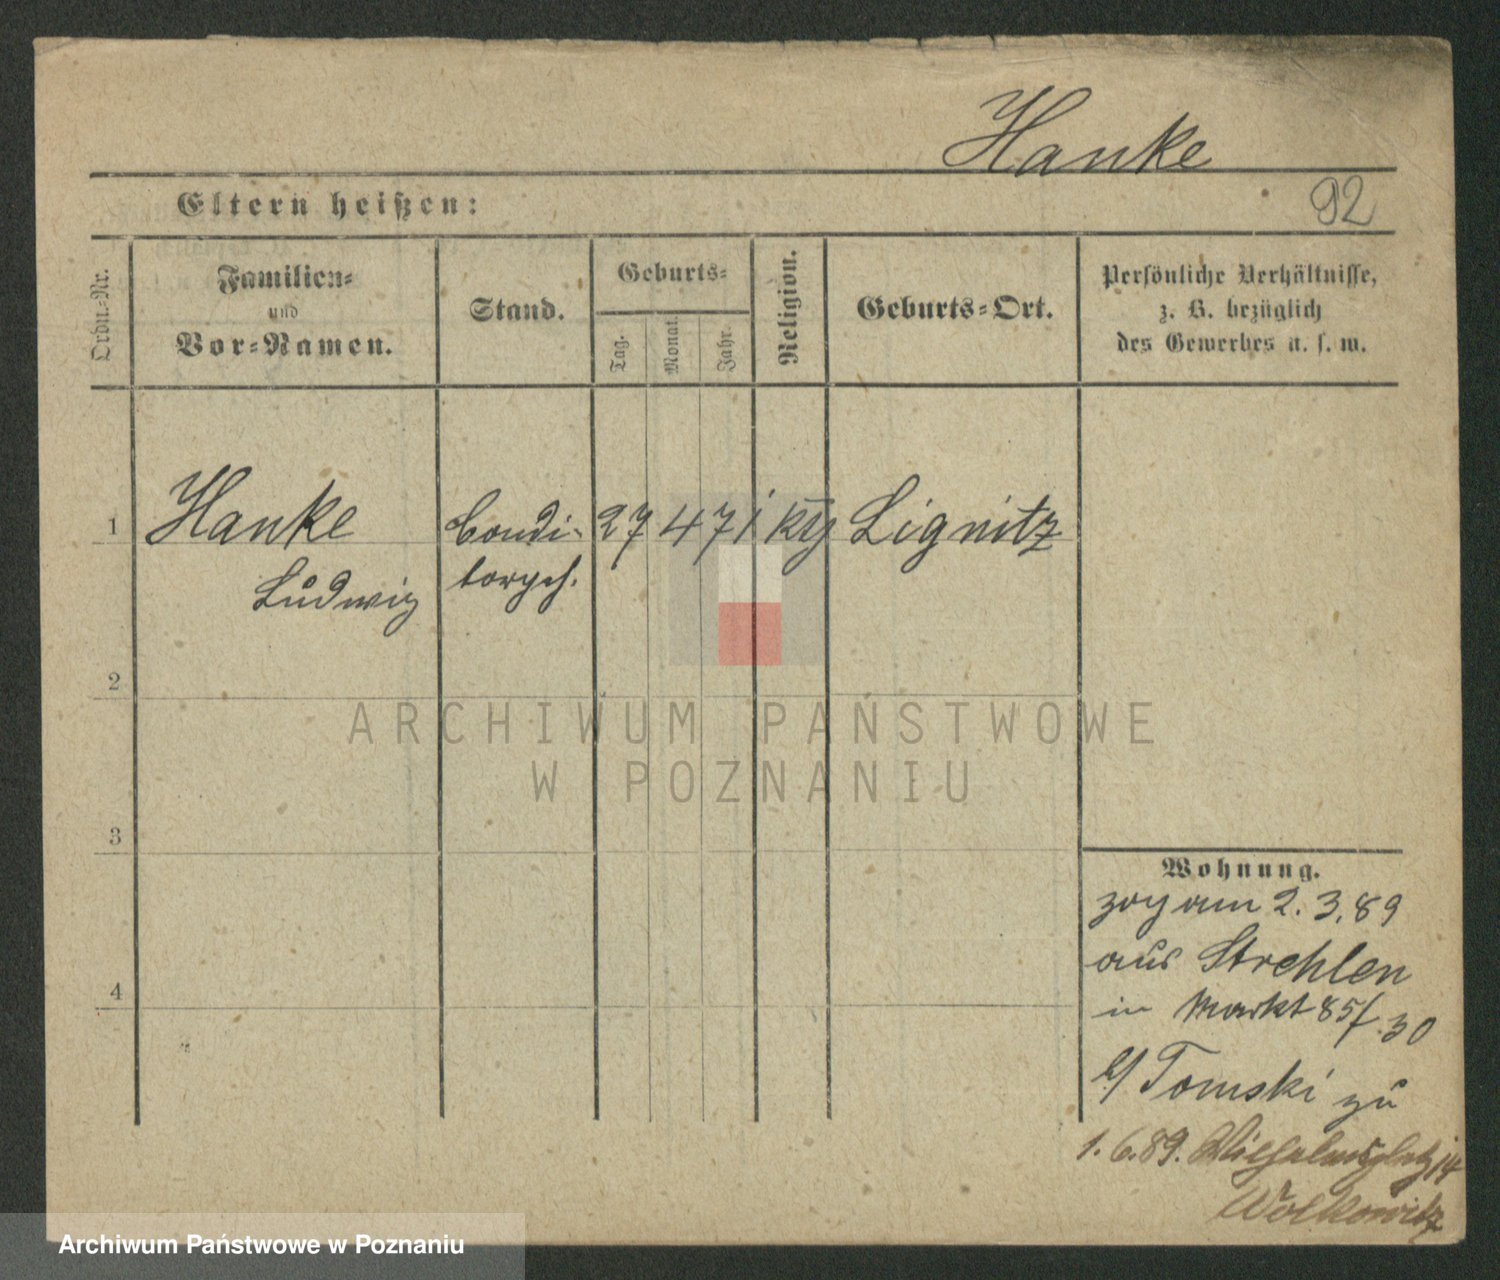 Hanke
92
Eltern heißen:
Ordn.-Nr.
Familien-
und
Vor-Namen.
Stand.
Geburts-
Tag.
Monat.
Jahr.
Religion.
Geburts-Ort.
Persönliche Verhältnisse,
z. B. bezüglich
des Gewerbes u. s. w.
1
Hanke
Ludwig
Condi-
torgeh.
27 4 71 Lignitz
2
ARCHIWUM PAŃSTWOWE
W POZNANIU
3
4
Wohnung.
zog am 2. 3. 89
aus Strehlen
in Markt 85/30
b/ Tomski zu
1. 6. 89. Wilhelmsplatz 14
Wolkowitz
Archiwum Państwowe w Poznaniu